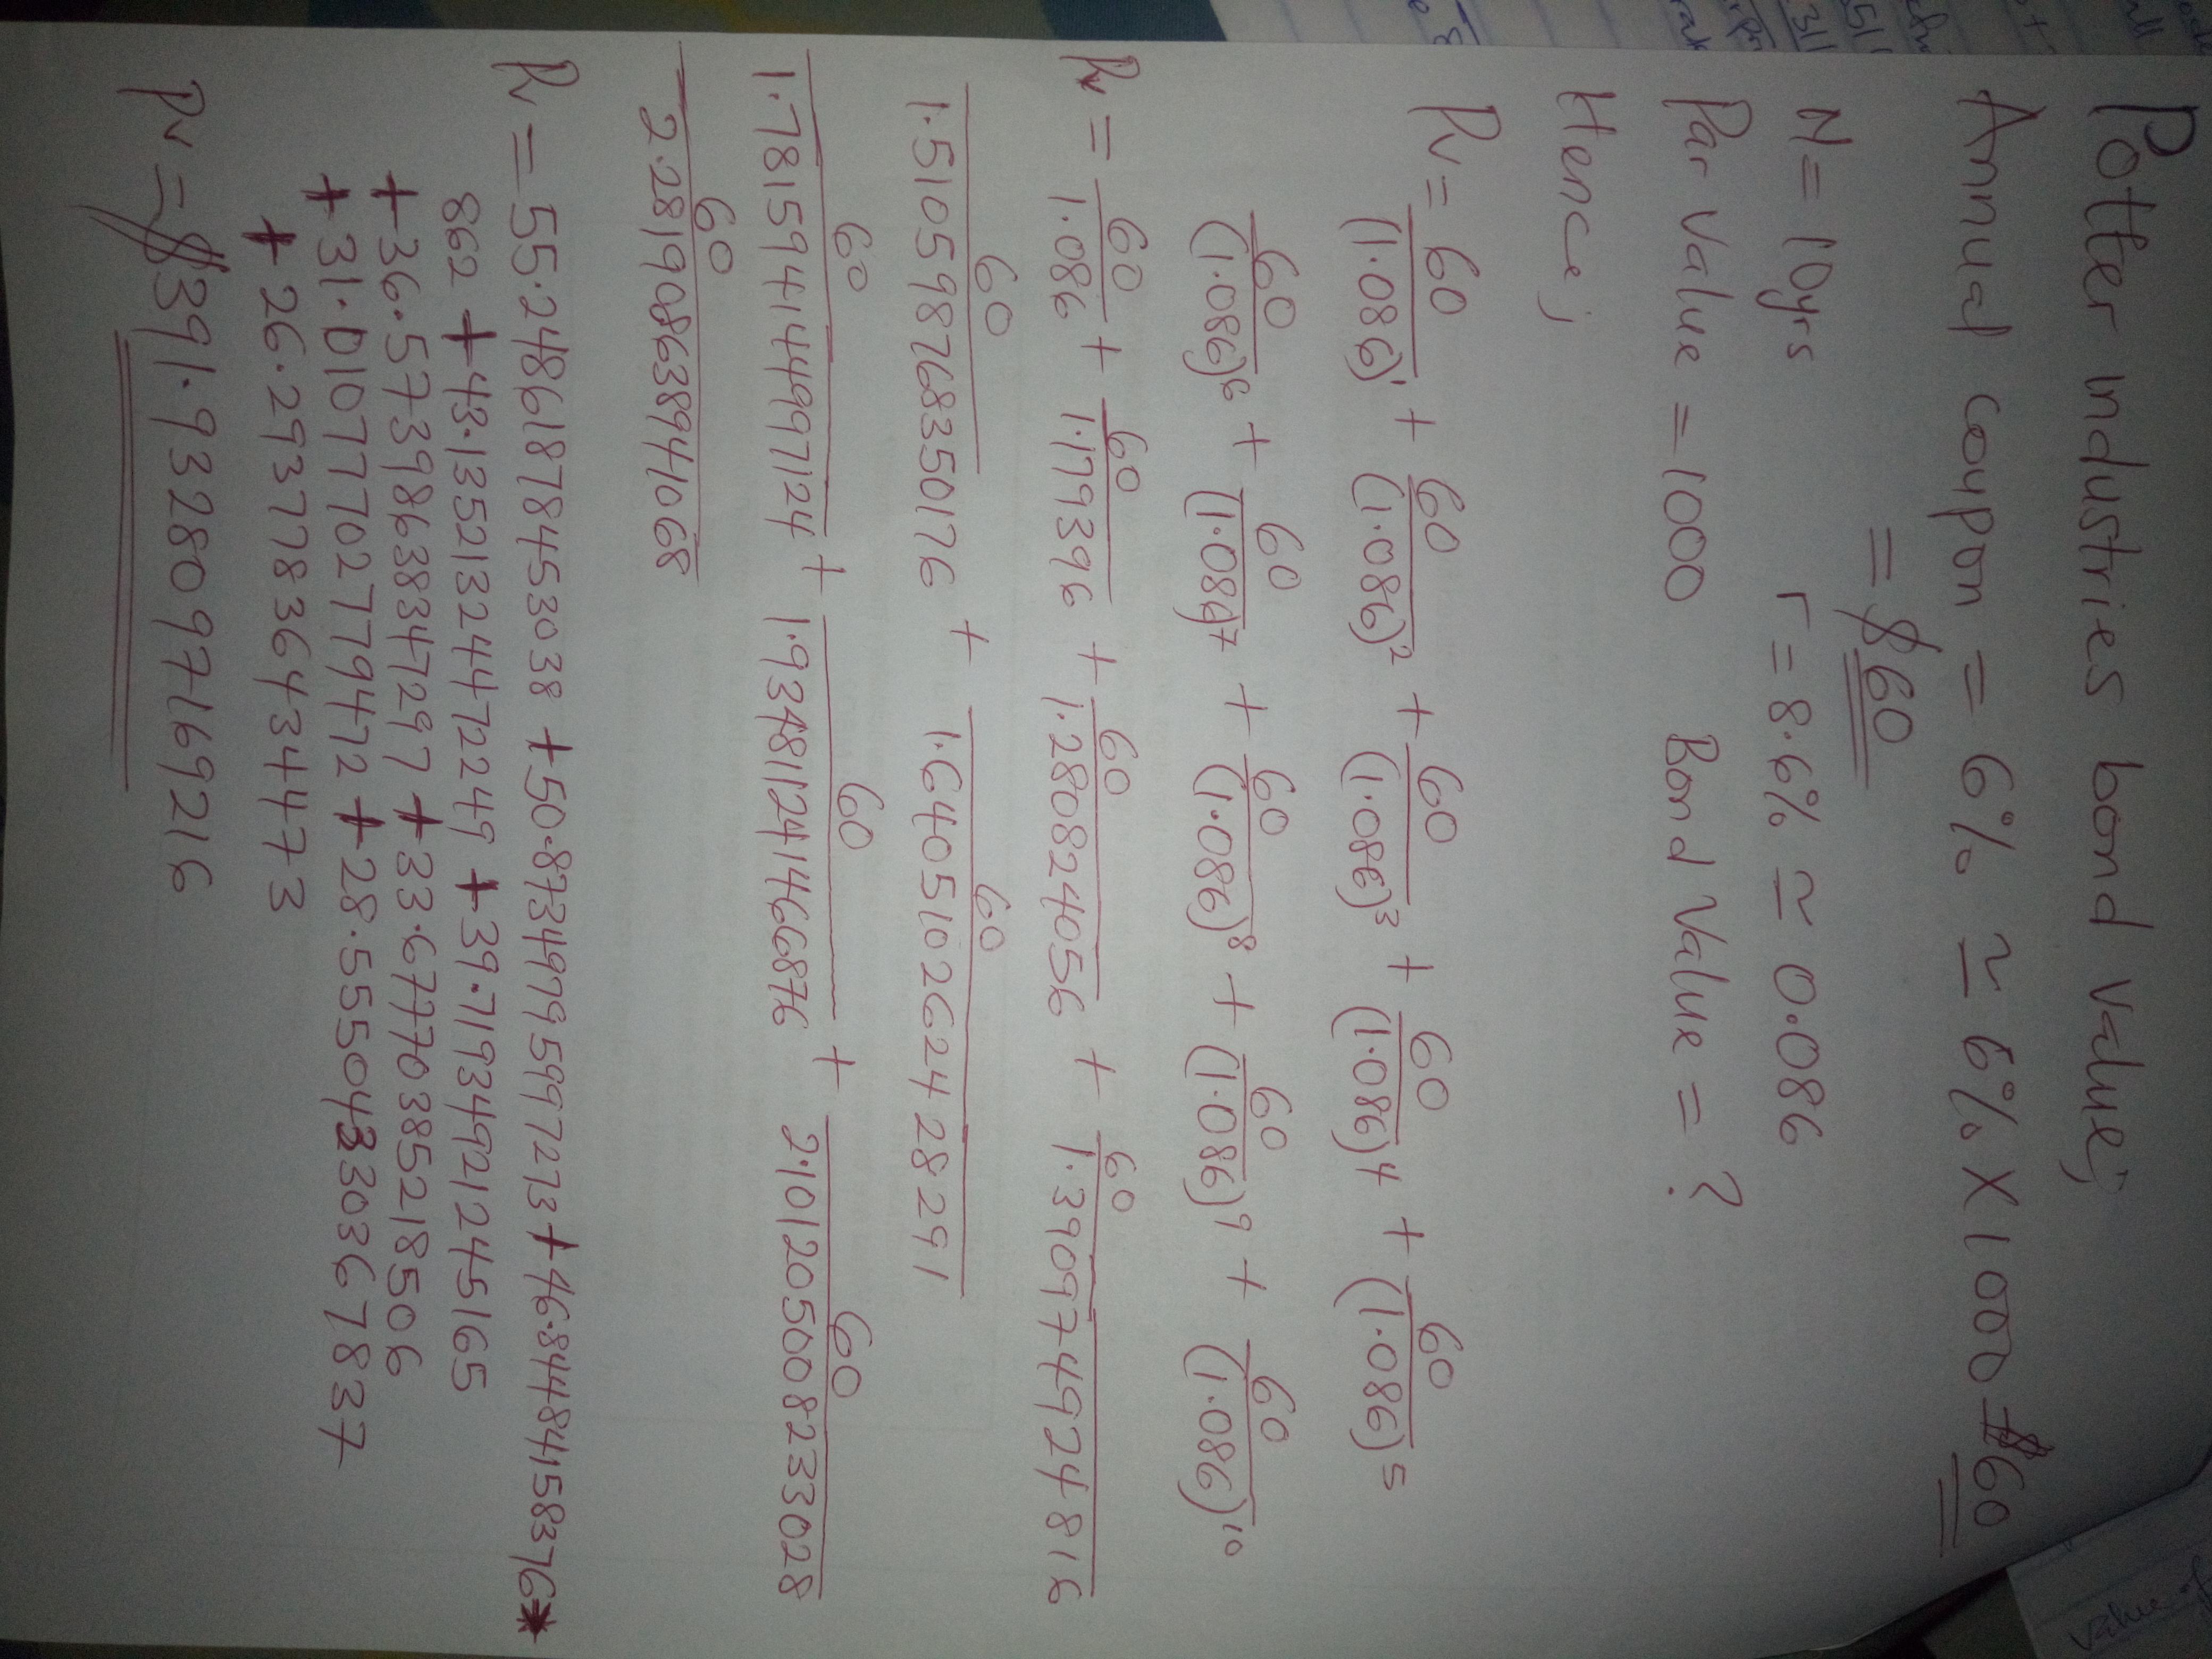 Potter industries bond value;
Annual coupon = 6% ≃ 6% X 1000 = $60
= $60
N = 10yrs r = 8.6% ≃ 0.086
Par value = 1000 Bond value = ?
Hence;
Pv = 60/(1.086)¹ + 60/(1.086)² + 60/(1.086)³ + 60/(1.086)⁴ + 60/(1.086)⁵
60/(1.086)⁶ + 60/(1.086)⁷ + 60/(1.086)⁸ + 60/(1.086)⁹ + 60/(1.086)¹⁰
Pv = 60/1.086 + 60/1.179396 + 60/1.280824056 + 60/1.390974924816
60/1.510598768350176 + 60/1.640510262428291
60/1.781594144997124 + 60/1.934811241466876 + 60/2.101205008233028
60/2.281908638941068
Pv = 55.24861878453038 + 50.873497959997273 + 46.84484158376*
862 + 43.135213244472249 + 39.719349212451 65
+ 36.57398638347297 + 33.677703852185 06
+ 31.010777027794 72 + 28.555043303678 37
+ 26.293778364344 73
Pv = $391.93280971669216